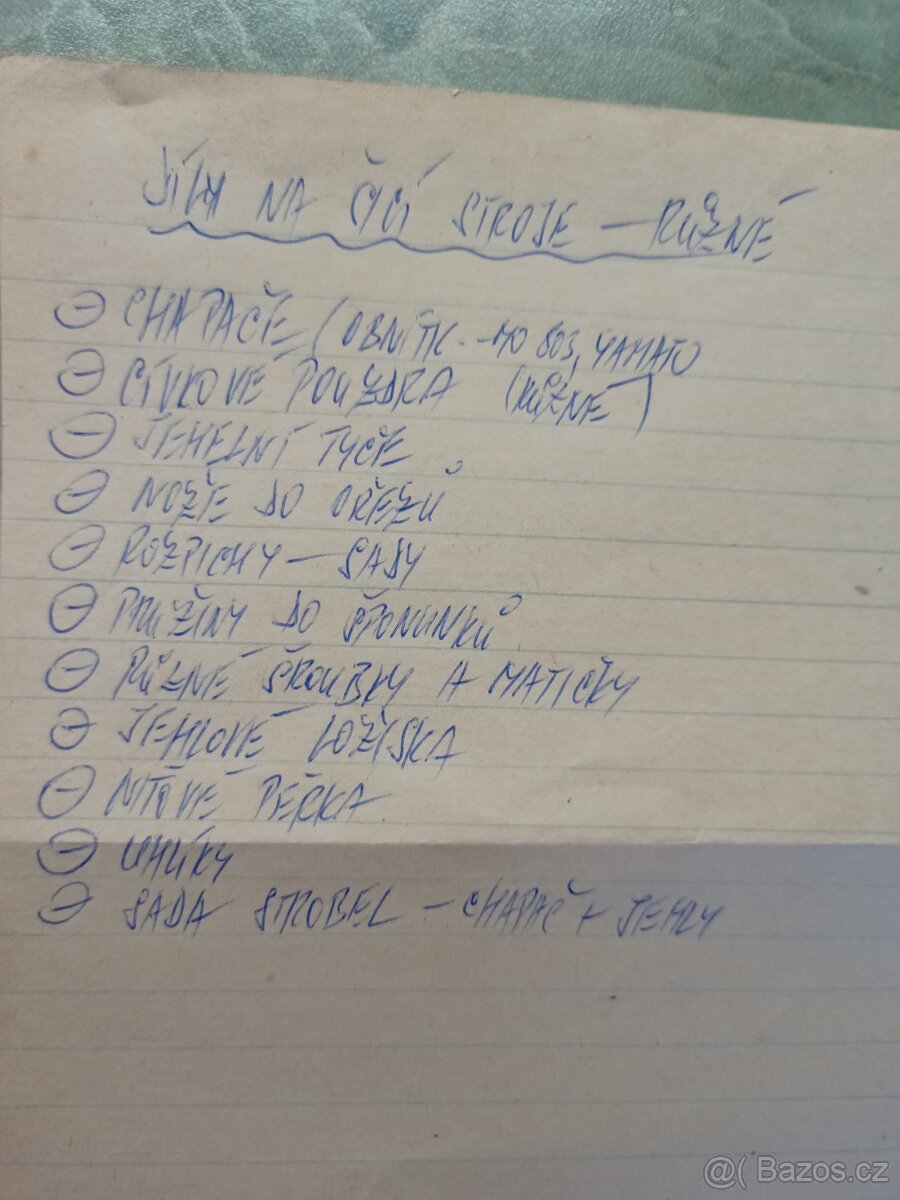 NA ČICÍ STROJE — RŮZNÉ
CHAPAČE (OBNITK. - MO 803, YAMATO
CÍVKOVÉ POUZDRA (RŮZNÉ)
JEHELNÍ TYČE
NOŽE DO OŘEZŮ
ROZPICHY — SADY
PRUŽINY DO ŠPONUNKŮ
RŮZNÉ ŠROUBKY A MATIČKY
JEHLOVÉ LOŽISKA
NIŤOVÉ PÉRKA
UHLÍKY
SADA STROBEL - CHAPAČ + JEHLY
@( Bazos.cz